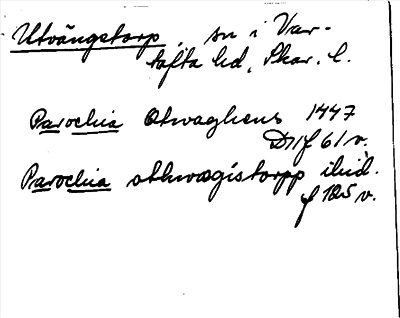 Utvängstorp, sn i Var-
tofta hd, Skar. l.
Parochia Otwaghens 1447
D11 f 61 v.
Parochia othwægistorpp ibid.
f 125 v.